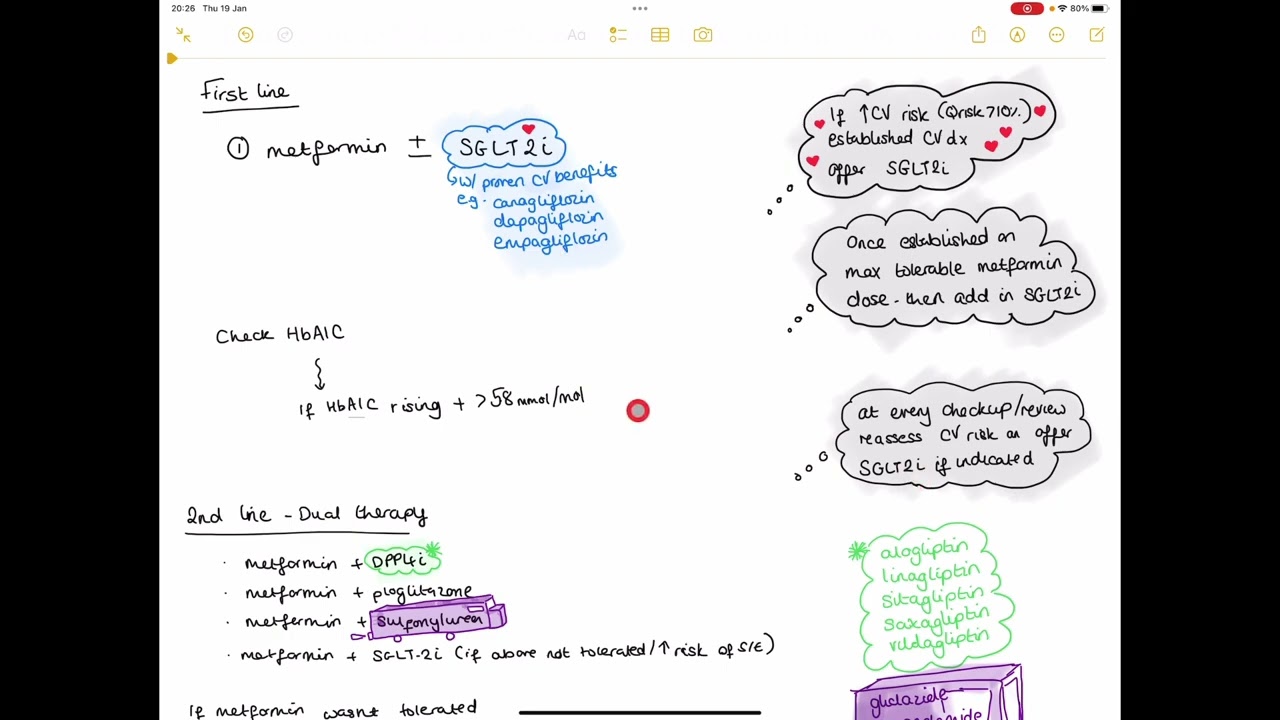 20:26 Thu 19 Jan
80%
Aa
First line
① metformin ± SGLT2i
↳ w/ proven CV benefits
eg. canagliflozin
dapagliflozin
empagliflozin
If ↑CV risk (Qrisk>10%)
established CV dx
offer SGLT2i
Once established on
max tolerable metformin
dose - then add in SGLT2i
Check HbA1C
If HbA1C rising + >58 mmol/mol
at every checkup/review
reassess CV risk an offer
SGLT2i if indicated
2nd line - Dual therapy
· metformin + DPP4i*
· metformin + pioglitazone
· metformin + Sulfonylurea
· metformin + SGLT-2i (if above not tolerated/↑ risk of S/E)
* alogliptin
linagliptin
sitagliptin
saxagliptin
vildagliptin
gliclazide
If metformin wasn't tolerated